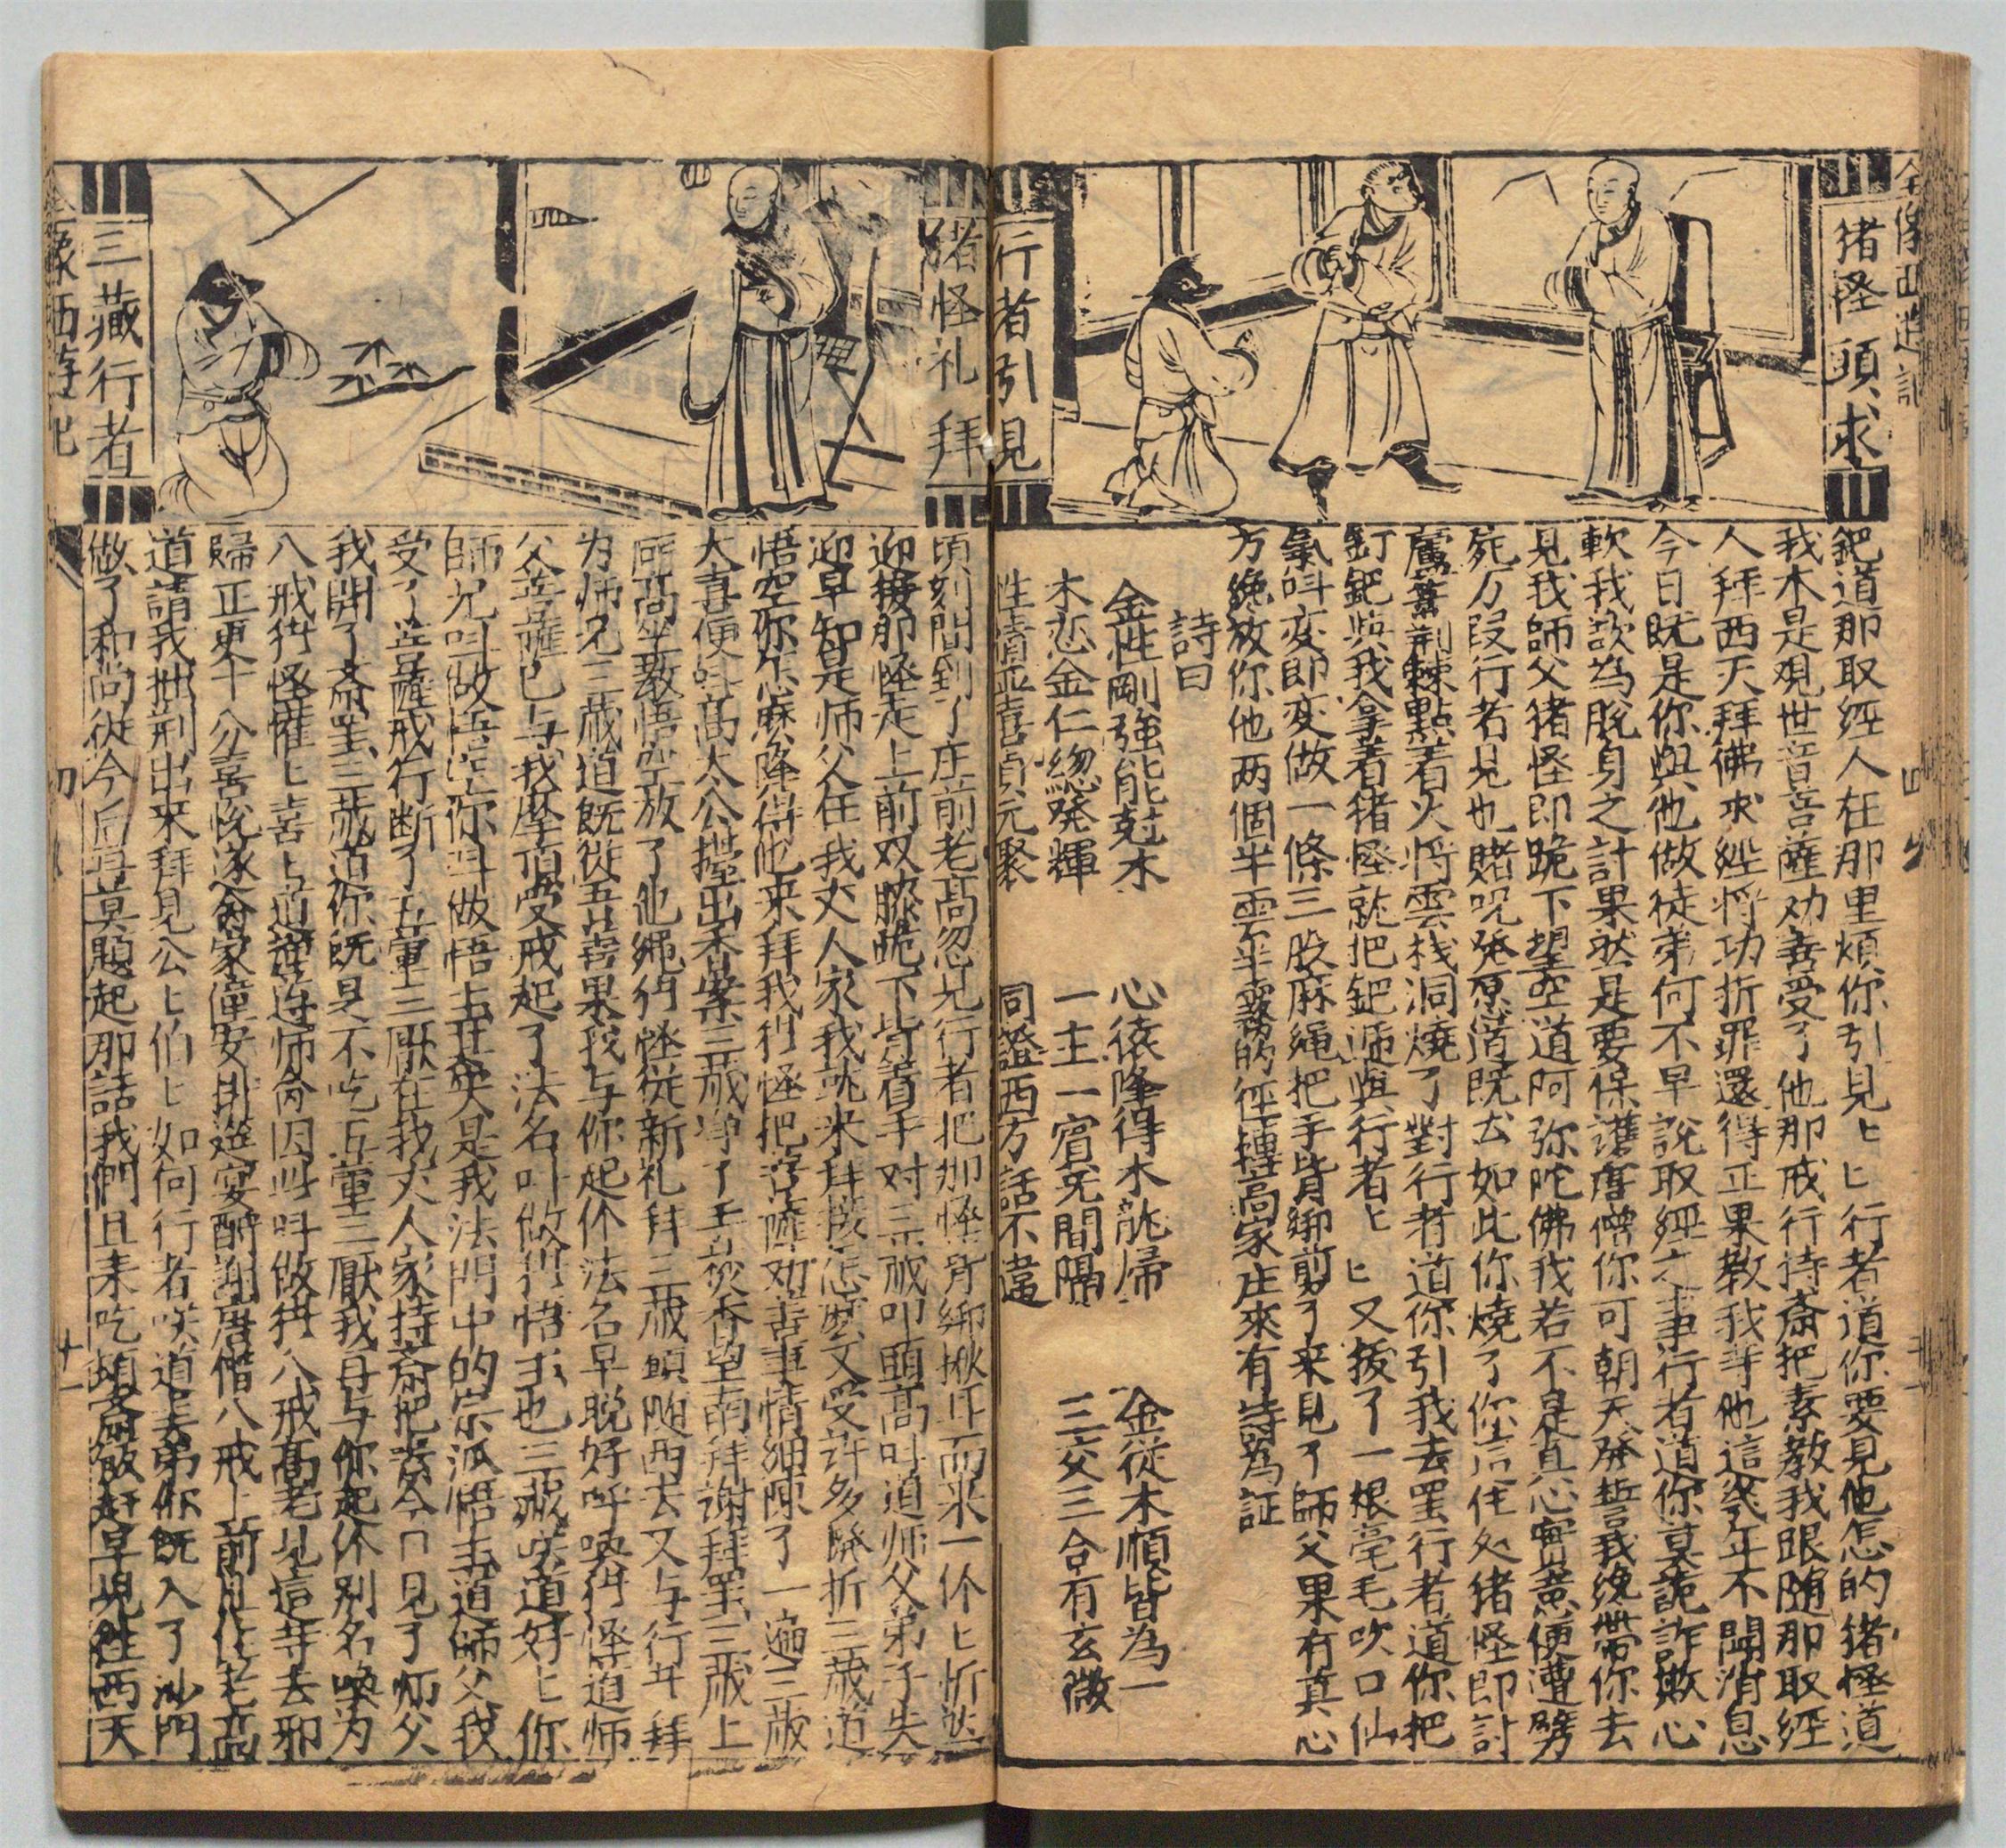 全像西遊記
猪怪願求
行者引見
鈀道那取經人在那里煩你引見匕匕行者道你要見他怎的猪怪道
我本是観世音菩薩劝善受了他那戒行持斋把素教我跟随那取經
人拜西天拜佛求經将功折罪還得正果教我等他這幾年不聞消息
今日既是你與他做徒弟何不早說取經之事行者道你莫詭詐欺心
軟我欲為脫身之計果然是要保護唐僧你可朝天發誓我纔帶你去
見我師父猪怪即跪下望空道阿弥陀佛我若不是真心實意便遭劈
死万段行者見他賭咒発愿道既去如此你燒了你這住处猪怪即討
蘆葦荆棘點着火将雲栈洞燒了對行者道你引我去罢行者道你把
釘鈀與我拿着猪怪就把鈀遞與行者匕匕又拔了一根毫毛吹口仙
氣叫变即变做一條三股麻繩把手背綁剪了来見了師父果有真心
方纔放你他两個半雲半霧的徑轉高家庄來有詩為証
詩曰
金性剛強能尅木 心猿降得木龍歸 金從木順皆為一
木恋金仁緫発輝 一主一賓無間隔 三交三合有玄微
性情並喜貞元聚 同證西方話不違
猪怪礼拜
三藏行者
頃刻間到了庄前老高忽見行者把那怪背綁揪耳而来一个匕忻然
迎接那怪走上前双膝跪下背着手对三藏叩頭高叫道师父弟子失
迎早知是师父住我丈人家我就来拜接怎麽又受許多磨折三藏道
悟空你怎麽降得他来拜我行怪把菩薩劝善事情細陳了一遍三藏
大喜便叫高太公擡出香案三藏净了手焚香望南拜謝拜罢三藏上
厛高坐教悟空放了他繩行怪從新礼拜三藏願随西去又与行者拜
为师兄三藏道既從吾善果我与你起个法名早晚好呼唤行怪道师
父菩薩已与我摩頂受戒起了法名叫做行悟能也三藏笑道好匕你
師兄叫做悟空你叫做悟能其实是我法門中的宗派悟能道師父我
受了菩薩戒行断了五葷三厭在我丈人家持斋把素今日見了师父
我開了斋罢三藏道你既是不吃五葷三厭我再与你起个别名唤为
八戒行怪懽匕喜匕道謹遵师命因此叫做猪八戒高老見這等去邪
歸正更十分喜悅遂命家僮安排筵宴酧謝唐僧八戒上前扯住老高
道請我拙荆出來拜見公匕伯匕如何行者笑道贤弟你既入了沙門
做了和尚從今后再莫題起那話我們且来吃頓斋飯赶早児往西天